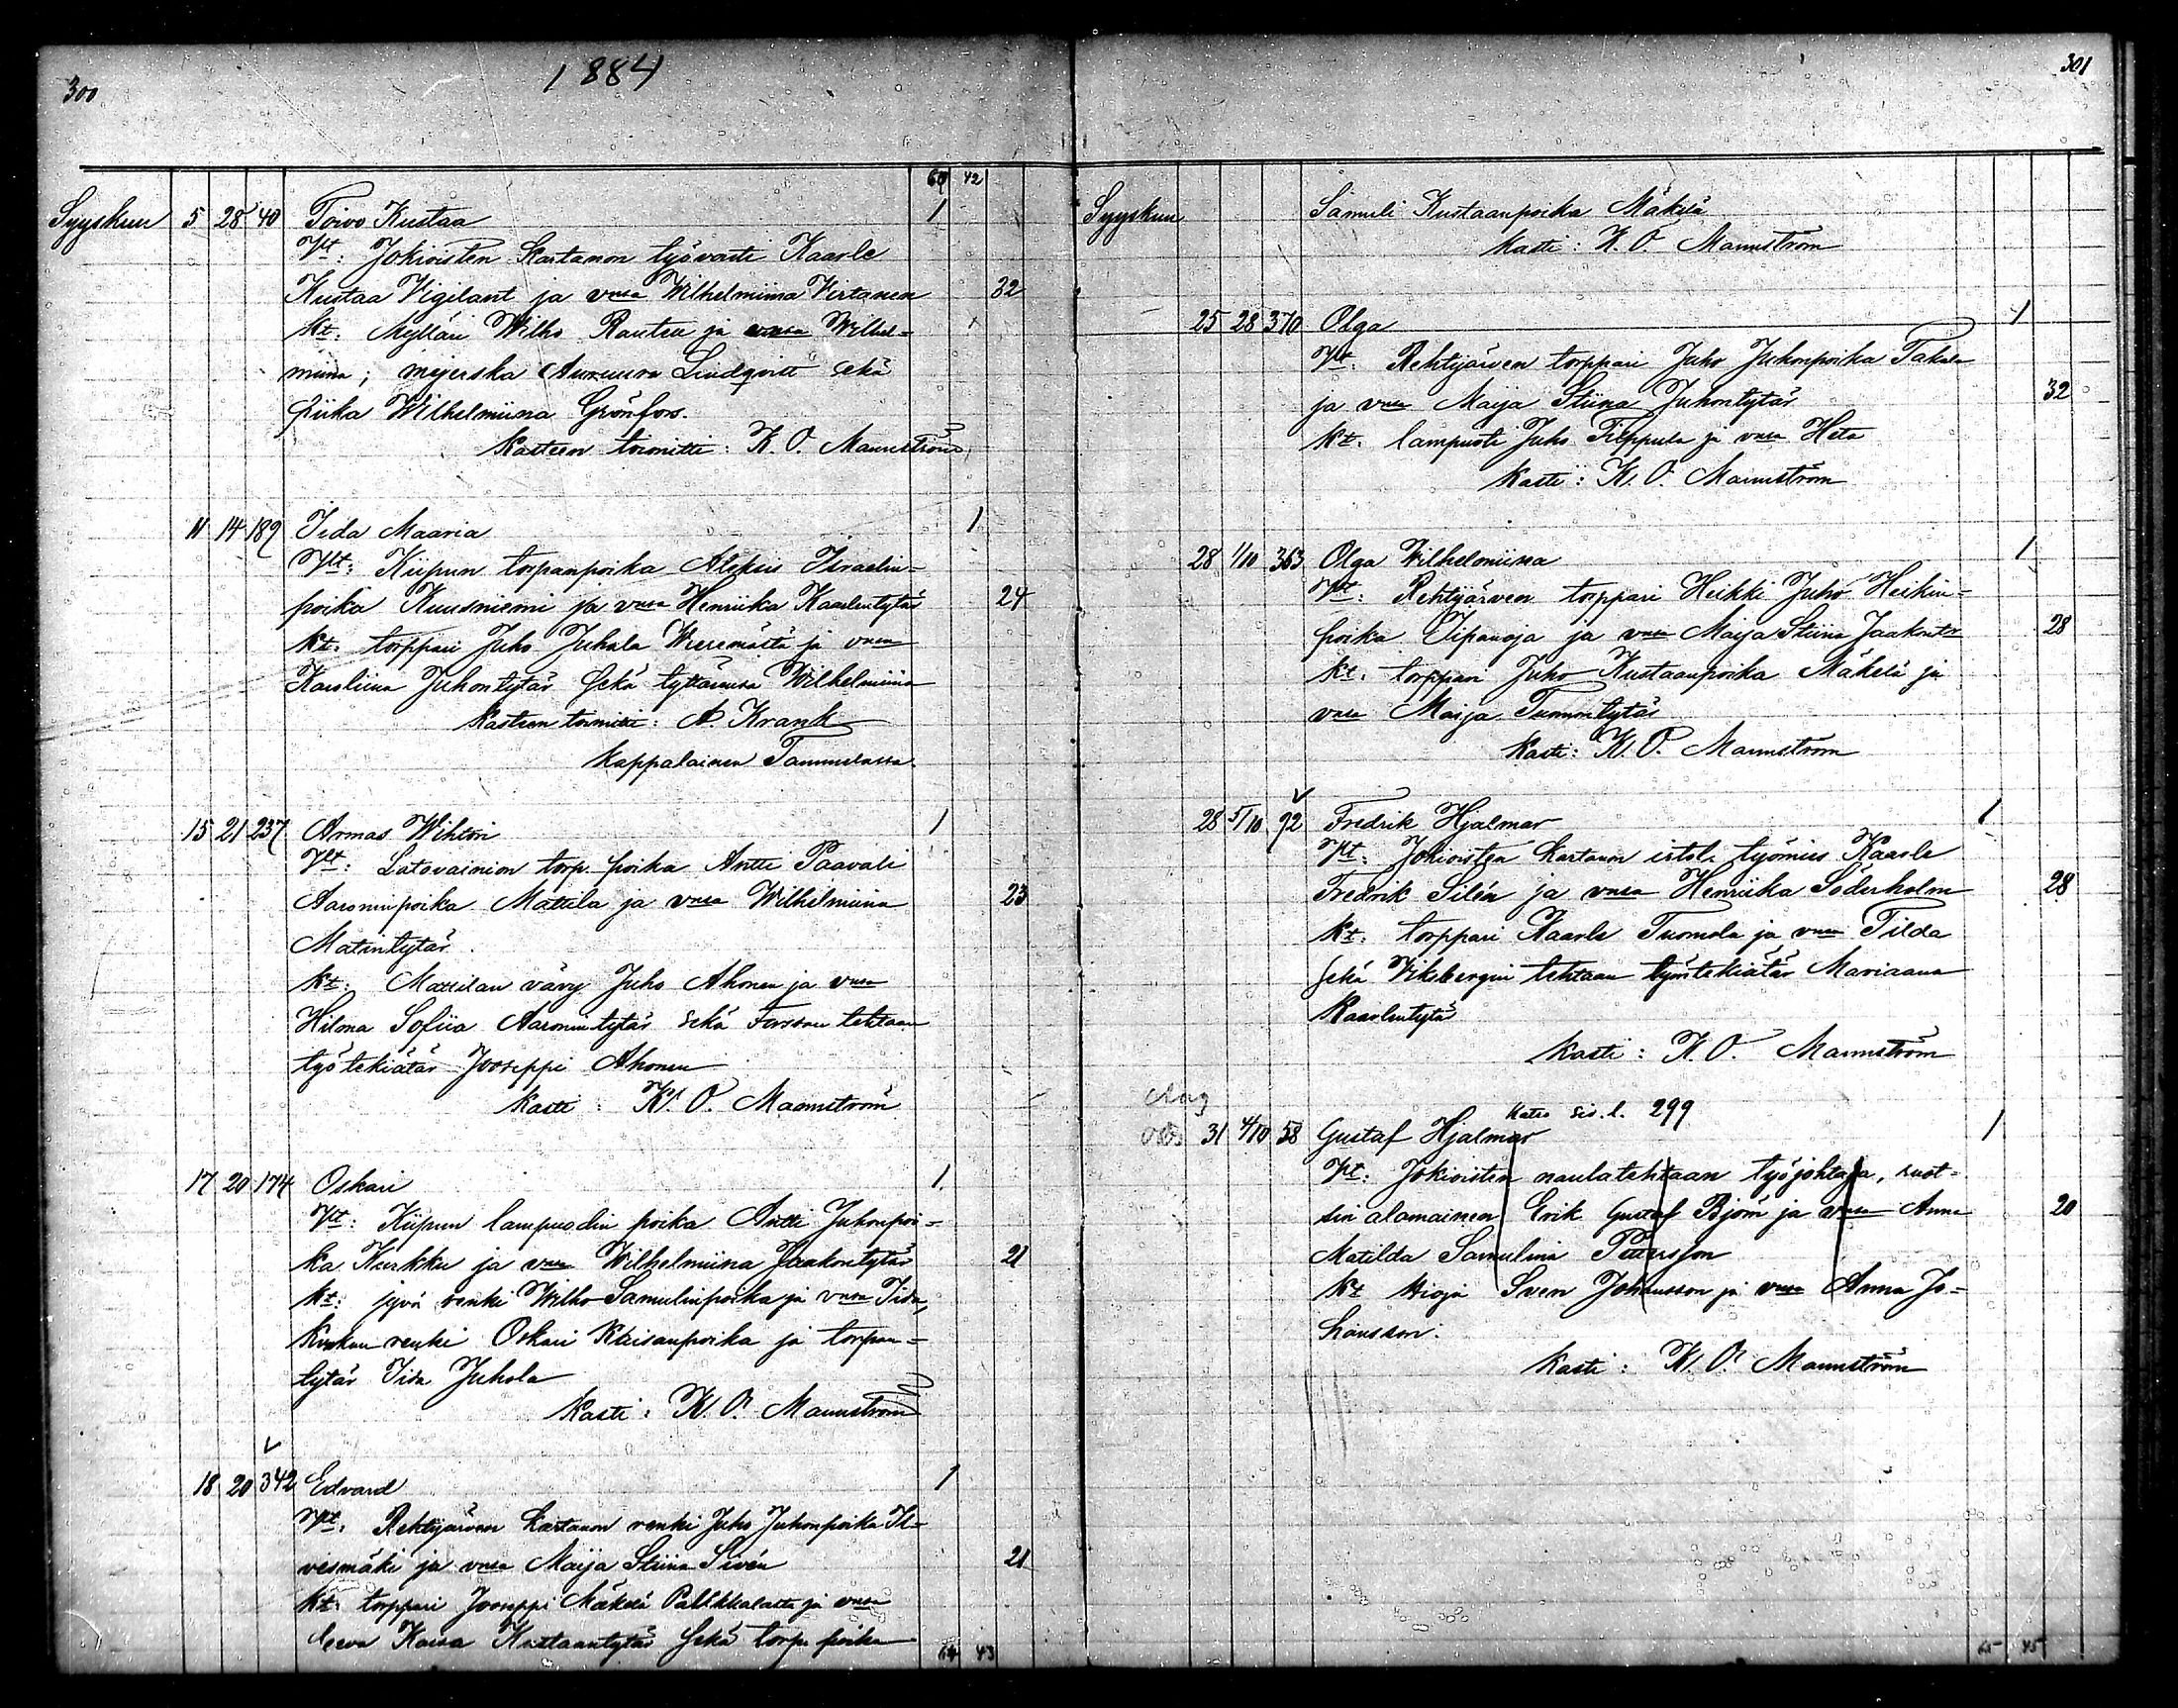 300
1884
60 42
Syyskuu 5 28 40 Toivo Kustaa 1
Vht: Jokioisten Kartanon työvouti Kaarle
Kustaa Vigilant ja vmsa Wilhelmiina Virtanen 32
kt: Mylläri Wilho Rautia ja vmsa Wilhel=
miina; mejerska Auruura Lindqvist sekä
piika Wilhelmiina Grönfors.
Kasteen toimitti: K. O. Mannström
11 14 189 Iida Maaria 1
Vht: Kiipun torpanpoika Aleksis Israelin=
poika Kuusniemi ja vmsa Henriika Kaarlentytär 24
kt: torppari Juho Juhala Wieremältä ja vmsa
Karoliina Juhontytär sekä tyttärensä Wilhelmiina
Kasteen toimitti: A. Krank
Kappalainen Tammelassa.
15 21 237 Armas Wihtori 1
Vht: Latovainion torp. poika Antti Paavali
Aaroninpoika Mattila ja vmsa Wilhelmiina 23
Matintytär.
kt: Mattilan vävy Juho Ahonen ja vmsa
Hilona Sofiia Aaronintytär sekä Forssan tehtaan
työtekiätär Jooseppi Ahonen
Kasti: K. O. Mannström
17 20 174 Oskari 1
Vht: Kiipun lampuodin poika Antti Juhonpoi=
ka Kurkku ja vmsa Wilhelmiina Jaakontytär 21
kt: jyvä renki Wilho Samulinpoika ja vmsa Iida,
Kurkun renki Oskari Kaisanpoika ja torpan=
tytär Iida Juhola
Kasti: K. O. Mannström
18 20 342 Edvard 1
Vht: Rehtijärven Kartanon renki Juho Juhonpoika Il=
vesmäki ja vmsa Maija Stiina Sivén 21
kt: torppari Jooseppi Mäkelä ja vmsa
Eeva Kaisa Kustaantytär sekä torp. poika
64 43
301
Syyskuu Samuli Kustaanpoika Mäkelä
Kasti: K. O. Mannström
25 28 370 Olga 1
Vht: Rehtijärven torppari Juho Juhonpoika Takala
ja vmsa Maija Stiina Juhontytär 32
kt: lampuoti Juho Filppula ja vmsa Heta
Kasti: K. O. Mannström
28 1/10 363 Olga Wilhelmiina 1
Vht: Rehtijärven torppari Heikki Juho Heikin=
poika Ojpanoja ja vmsa Maija Stiina Jaakontr 28
kt: torppari Juho Kustaanpoika Mäkelä ja
vmsa Maija Tuomontytär
Kasti: K. O. Mannström
28 5/10 92 Fredrik Hjalmar 1
Vht: Jokioisten Kartanon työmies Kaarle
Fredrik Silén ja vmsa Henriika Söderholm 28
kt: torppari Kaarle Tuomola ja vmsa Tilda
sekä Vikebergin tehtaan työntekiätär Mariaana
Kaarlentytär
Kasti: K. O. Mannström
Aug
Katso siv. l. 299
31 4/10 58 Gustaf Hjalmar 1
Vht: Jokioisten naulatehtaan työjohtaja, ruot=
sin alamainen Erik Gustaf Björn ja vmsa Anna 20
Matilda Samulina Pettersson
kt Hioja Sven Johansson ja vmsa Anna Jo=
hansson.
Kasti: K. O. Mannström
65 45